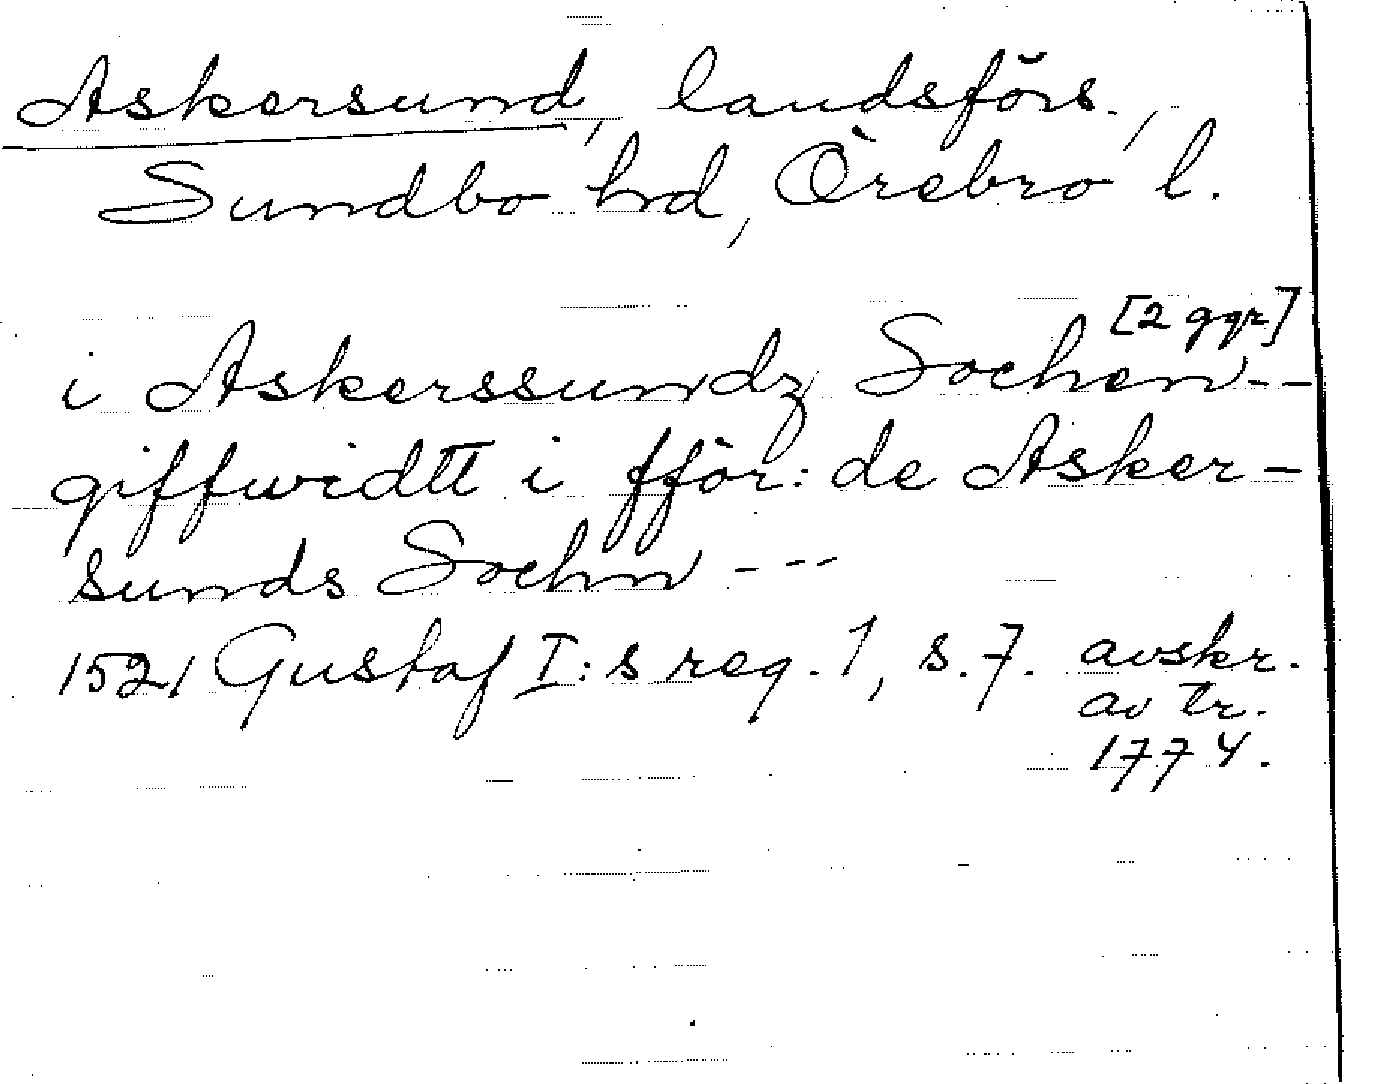 Askersund, landsförs.,
Sundbo hrd, Örebro l.
[2 ggr]
i Askerssundz Sochen--
giffwidtt i fför: de Asker-
sunds Sochn ---
1521 Gustaf I:s reg. 1, s. 7. avskr.
av tr.
1774.